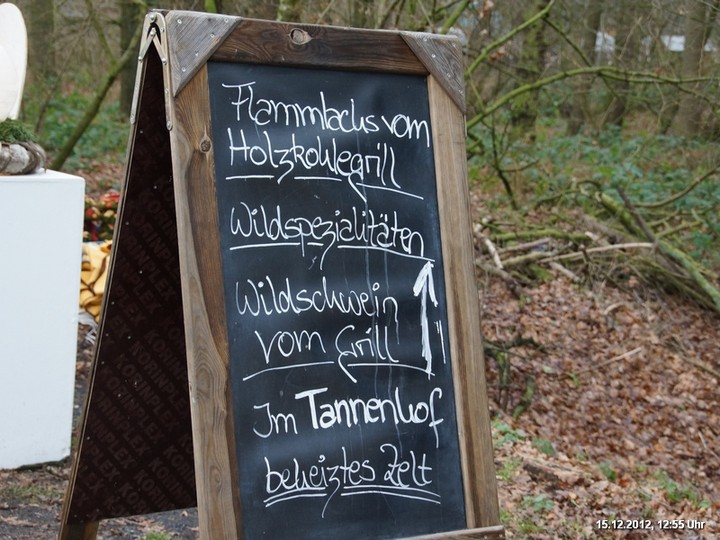 Flammlachs vom
Holzkohlegrill
Wildspezialitäten
Wildschwein
vom Grill
Im Tannenhof
beheiztes Zelt
KORINPLEX
15.12.2012, 12:55 Uhr